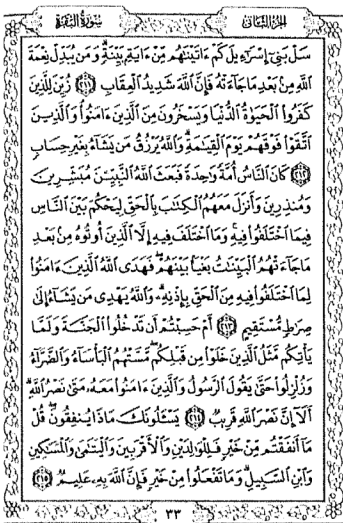 الجزء الثاني
سورة البقرة
سَلْ بَنِىٓ إِسْرَٰٓءِيلَ كَمْ ءَاتَيْنَٰهُم مِّنْ ءَايَةٍۭ بَيِّنَةٍ وَمَن يُبَدِّلْ نِعْمَةَ
ٱللَّهِ مِنۢ بَعْدِ مَا جَآءَتْهُ فَإِنَّ ٱللَّهَ شَدِيدُ ٱلْعِقَابِ ﴿٢١١﴾ زُيِّنَ لِلَّذِينَ
كَفَرُوا۟ ٱلْحَيَوٰةُ ٱلدُّنْيَا وَيَسْخَرُونَ مِنَ ٱلَّذِينَ ءَامَنُوا۟ وَٱلَّذِينَ
ٱتَّقَوْا۟ فَوْقَهُمْ يَوْمَ ٱلْقِيَٰمَةِ وَٱللَّهُ يَرْزُقُ مَن يَشَآءُ بِغَيْرِ حِسَابٍ
﴿٢١٢﴾ كَانَ ٱلنَّاسُ أُمَّةً وَٰحِدَةً فَبَعَثَ ٱللَّهُ ٱلنَّبِيِّۦنَ مُبَشِّرِينَ
وَمُنذِرِينَ وَأَنزَلَ مَعَهُمُ ٱلْكِتَٰبَ بِٱلْحَقِّ لِيَحْكُمَ بَيْنَ ٱلنَّاسِ
فِيمَا ٱخْتَلَفُوا۟ فِيهِ وَمَا ٱخْتَلَفَ فِيهِ إِلَّا ٱلَّذِينَ أُوتُوهُ مِنۢ بَعْدِ
مَا جَآءَتْهُمُ ٱلْبَيِّنَٰتُ بَغْيًۢا بَيْنَهُمْ فَهَدَى ٱللَّهُ ٱلَّذِينَ ءَامَنُوا۟
لِمَا ٱخْتَلَفُوا۟ فِيهِ مِنَ ٱلْحَقِّ بِإِذْنِهِۦ وَٱللَّهُ يَهْدِى مَن يَشَآءُ إِلَىٰ
صِرَٰطٍ مُّسْتَقِيمٍ ﴿٢١٣﴾ أَمْ حَسِبْتُمْ أَن تَدْخُلُوا۟ ٱلْجَنَّةَ وَلَمَّا
يَأْتِكُم مَّثَلُ ٱلَّذِينَ خَلَوْا۟ مِن قَبْلِكُم مَّسَّتْهُمُ ٱلْبَأْسَآءُ وَٱلضَّرَّآءُ
وَزُلْزِلُوا۟ حَتَّىٰ يَقُولَ ٱلرَّسُولُ وَٱلَّذِينَ ءَامَنُوا۟ مَعَهُۥ مَتَىٰ نَصْرُ ٱللَّهِ
أَلَآ إِنَّ نَصْرَ ٱللَّهِ قَرِيبٌ ﴿٢١٤﴾ يَسْـَٔلُونَكَ مَاذَا يُنفِقُونَ قُلْ
مَآ أَنفَقْتُم مِّنْ خَيْرٍ فَلِلْوَٰلِدَيْنِ وَٱلْأَقْرَبِينَ وَٱلْيَتَٰمَىٰ وَٱلْمَسَٰكِينِ
وَٱبْنِ ٱلسَّبِيلِ وَمَا تَفْعَلُوا۟ مِنْ خَيْرٍ فَإِنَّ ٱللَّهَ بِهِۦ عَلِيمٌ ﴿٢١٥﴾
٣٣